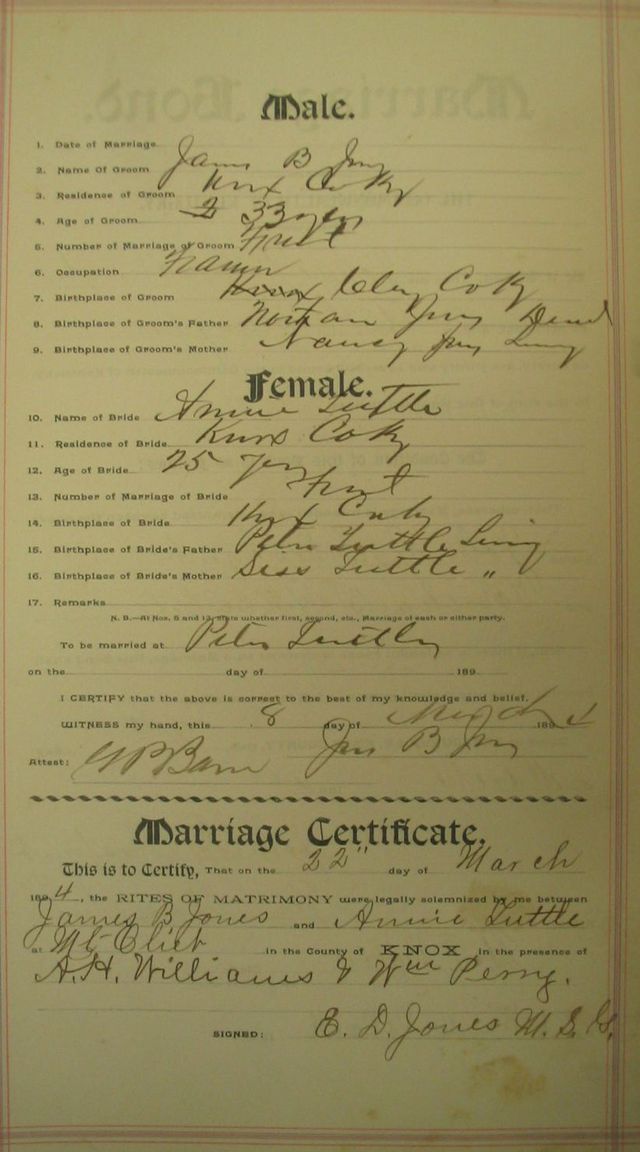 Male.
1. Date of Marriage
2. Name Of Groom James B Jones
3. Residence of Groom Knox Co Ky
4. Age of Groom 33 yrs
5. Number of Marriage of Groom First
6. Occupation Farmer
7. Birthplace of Groom Clay Co Ky
8. Birthplace of Groom's Father Jones Dead
9. Birthplace of Groom's Mother Nancy Jones Living
Female.
10. Name of Bride Annie Tuttle
11. Residence of Bride Knox Co Ky
12. Age of Bride 25 yrs
13. Number of Marriage of Bride First
14. Birthplace of Bride Knox Co Ky
15. Birthplace of Bride's Father Peter Tuttle Living
16. Birthplace of Bride's Mother Siss Tuttle "
17. Remarks
N. B.—At Nos. 5 and 13, state whether first, second, etc., Marriage of each or either party.
To be married at Peter Tuttles
on the day of 189
I CERTIFY that the above is correct to the best of my knowledge and belief.
WITNESS my hand, this 8 day of March 1894
Attest: Jas B Jones
Marriage Certificate.
This is to Certify, That on the 22" day of March
1894, the RITES OF MATRIMONY were legally solemnized by me between
James B Jones and Annie Tuttle
at Mt in the County of KNOX in the presence of
A. H. Williams & Wm Perry.
SIGNED: E. D. Jones M. S. G.